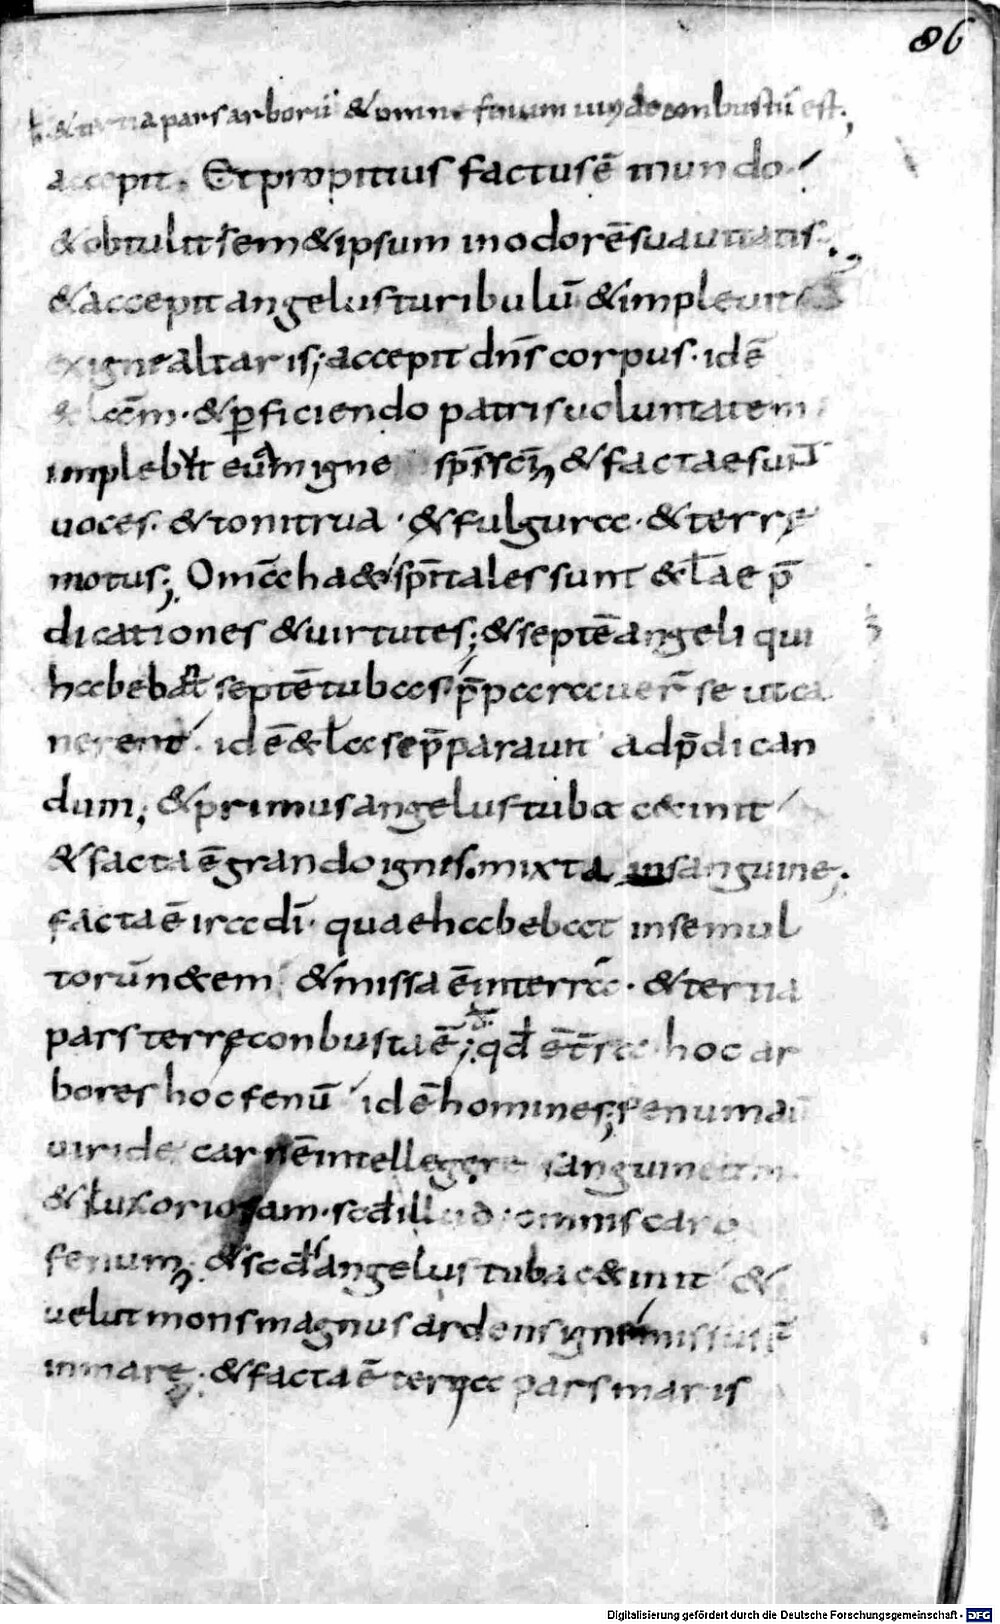 86
h. & tertia pars arborū & omne fenum uiride conbustū est.,
accepit. Et propitius factus ē mundo
& obtulit sem&ipsum in odorē suauitatis.,
& accepit angelus turibulū & impleuit
ex igne altaris; accepit dn̄s corpus. id ē
&cc̄m. & ꝑficiendo patris uoluntatem
implebit eum igne sp̄s sc̄i, & factae sunt
uoces. & tonitrua. & fulgura. & terrę
motus; Om̄a ha& sp̄itales sunt & ł ae p̄
dicationes & uirtutes; & septē angeli qui
habebant septē tubas p̄parauer̄ se ut ca
nerent. id ē & ł a se p̄parauit ad p̄dican
dum; & primus angelus tuba cecinit
& facta ē grando ignis. mixta in sanguine;
facta ē ira dī. quae habebat in se mul
torū necem & missa ē in terra. & tertia
pars terrę conbusta ē; qđ ē t̄ra hoc ar
bores hoc fenū id ē homines; fenum aū
uiride carnē intellegere sanguineam
& luxoriosam. scd illud omnis caro
fenum; & scd̄s angelus tuba cecinit &
uelut mons magnus ardens igne missus ē
in marę; & facta ē tertia pars maris
Digitalisierung gefördert durch die Deutsche Forschungsgemeinschaft - DFG